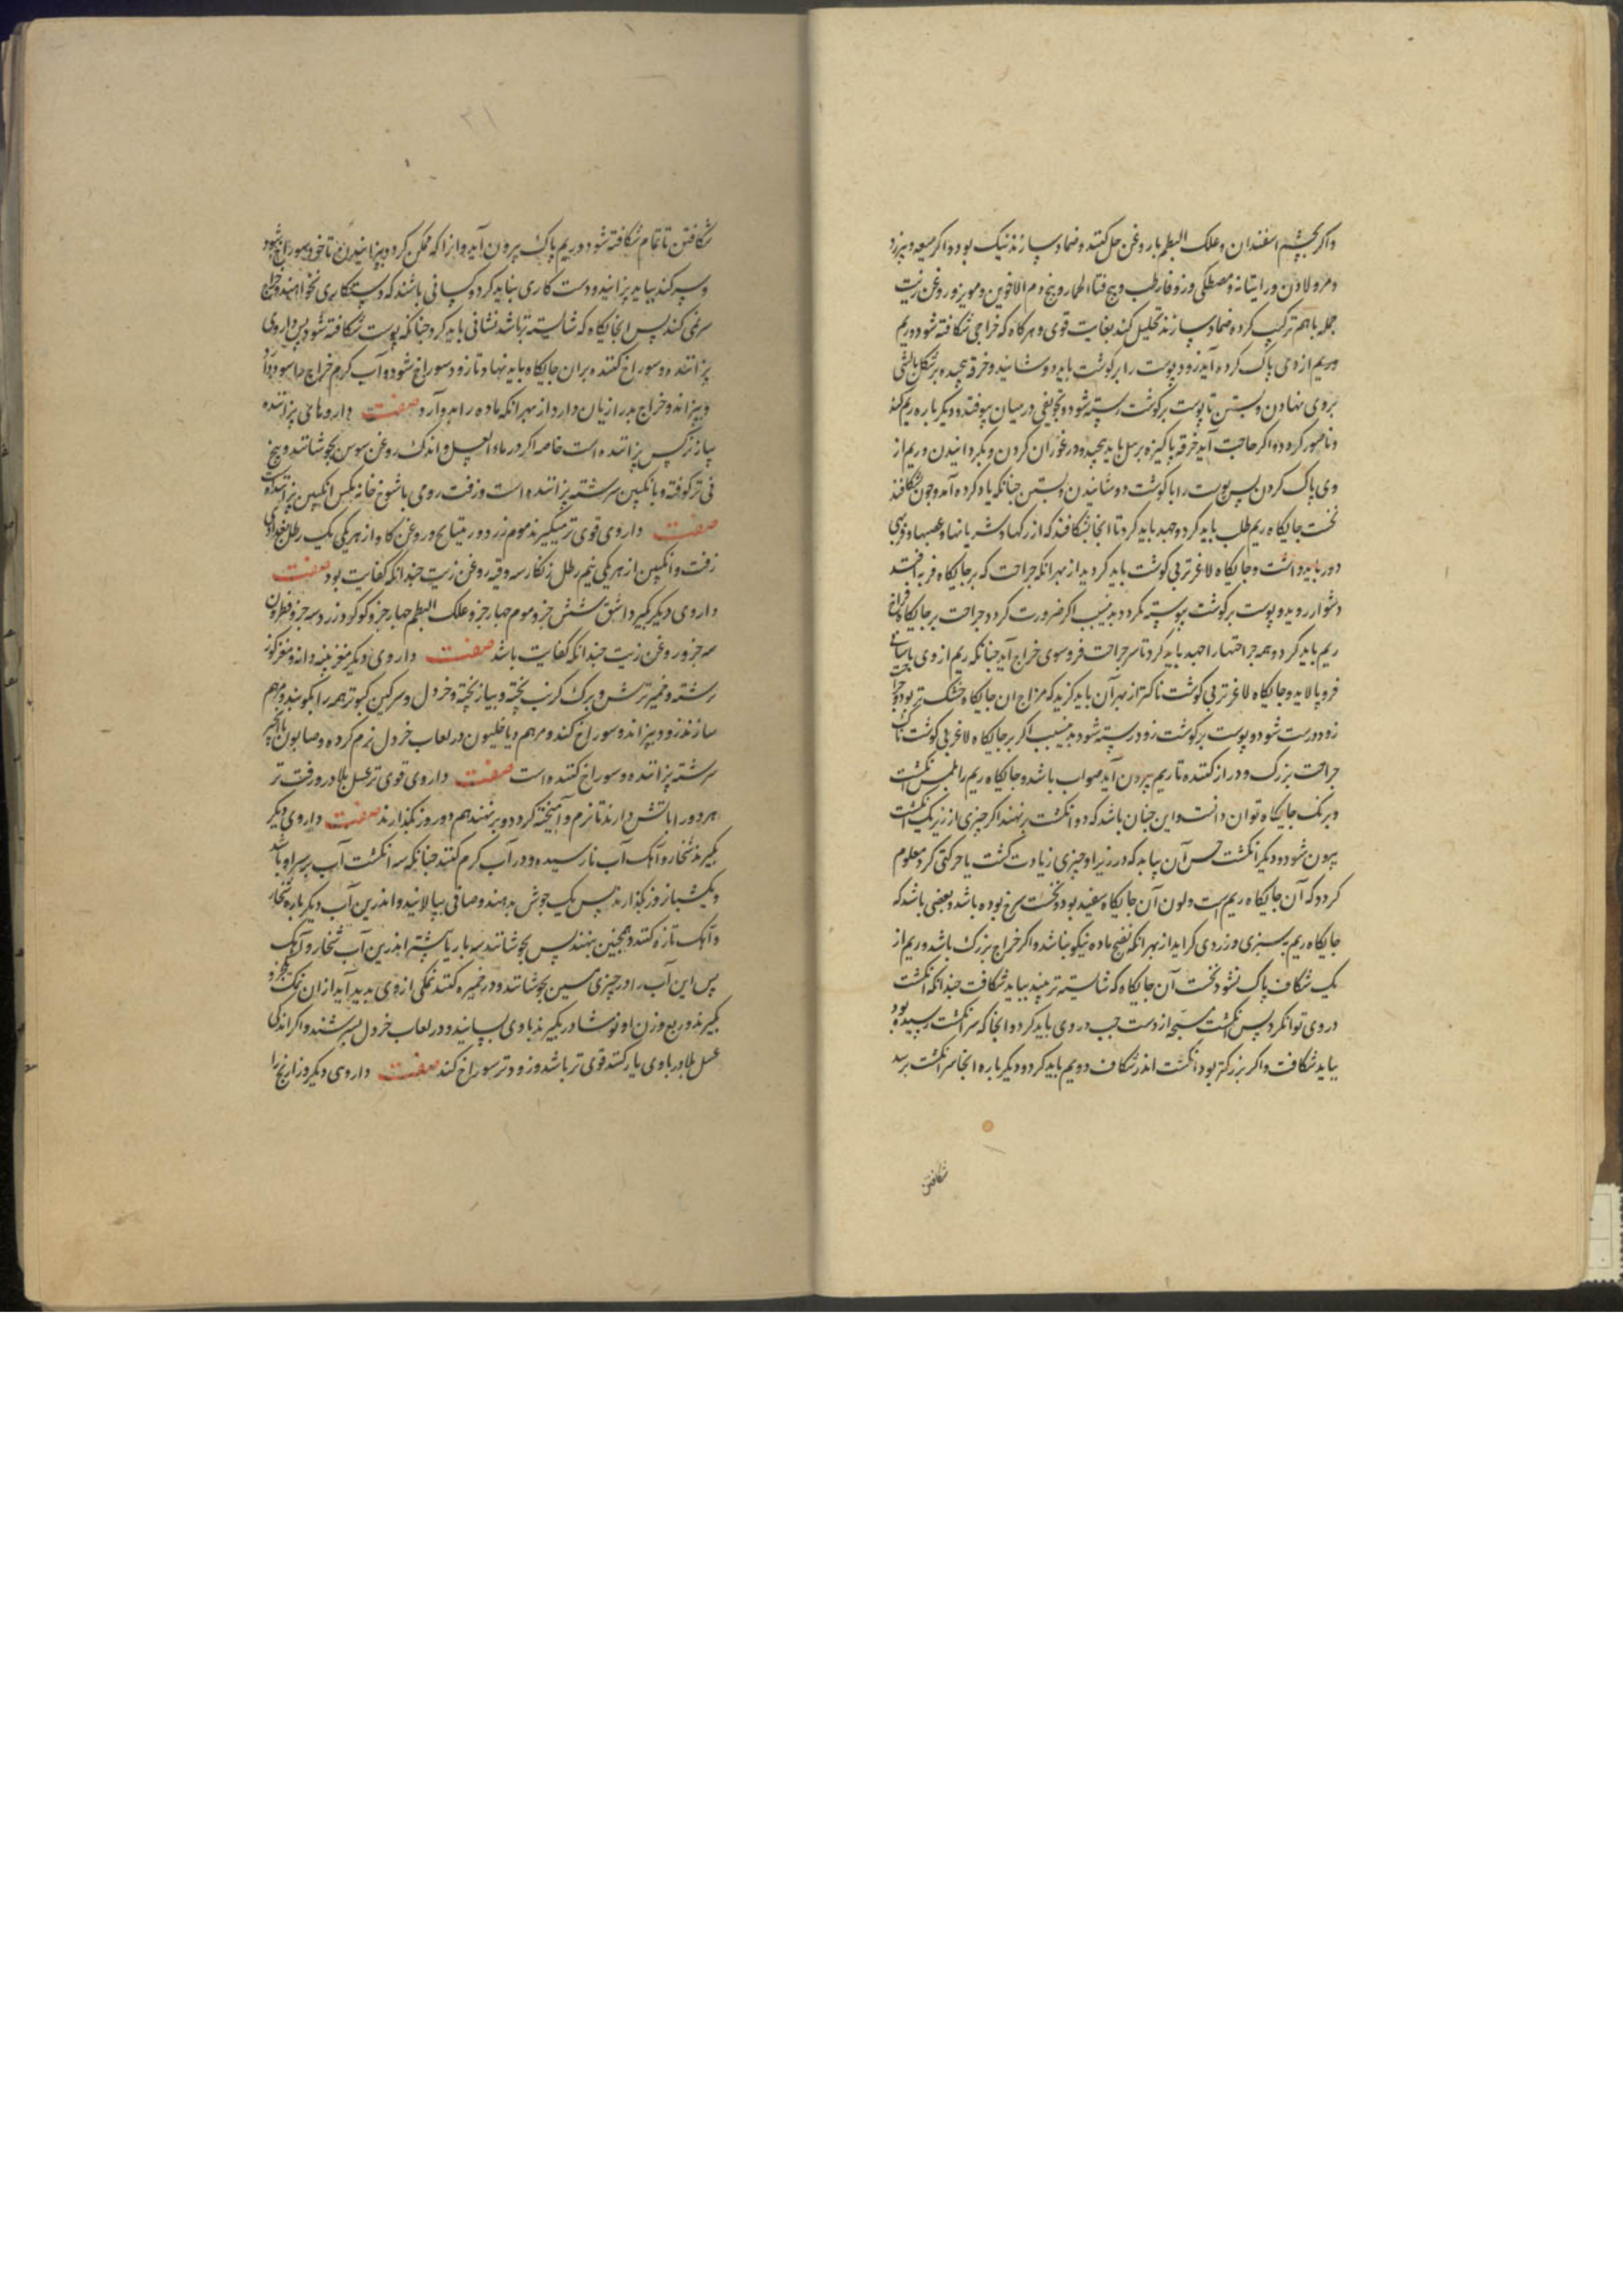 واکر بچشم اسفندان وعلک البطم باروغن حل کنند وضماد سازند نیک بود واکر میعه وبیرزد
ومر ولادن وراتیانه ومصطکی وزوفاء رطب وبیخ قثاء الحمار وبیخ دم الاخوین ومویز وروغن زیت
جمله باهم ترکیب کرده ضماد سازند تحلیل کند بغایت قوی وهرکاه که خراجی شکافته شود وریم
وریم از وی پاک کرده آید زود پوست را برکوشت باید دوسانید وخرقه پیچیده برشکل بالشی
بروی نهادن وبستن تا پوست برکوشت بسته شود وتجویفی در میان نیوفتد ودیکرباره ریم کند
وناصور کردد واکر حاجت آید خرقه پاکیزه برمیل باید پیچید ودر غور آن کردن وبکردانیدن وریم از
وی پاک کردن پس پوست را باکوشت دوسانیدن وبستن جنانکه یاد کرده آمد وجون شکافند
نخست جایکاه ریم طلب باید کرد وجهد باید کرد تا آنجا شکافند که از رکها وشریانها وعصبها وفربهی
دور باید داشت وجایکاه لاغرتر بی کوشت باید کردید از بهر آنکه جراحت که برجایکاه فربه افتد
دشوار روید وپوست برکوشت پیوسته نکردد بدین سبب اکر ضرورت کردد جراحت برجایکاه فراخ
ریم باید کرد وهمه جراحتها را جهد باید کرد تا سر جراحت فرو سوی خراج آید جنانکه ریم از وی باسانی
فرو پالاید وجایکاه لاغرتر بی کوشت ناکتر از بهر آن باید کزید که مزاج آن جایکاه خشک تر بود وجراحت
زود درست شود وپوست برکوشت زود رسته شود بدین سبب اکر برجایکاه لاغر بی کوشت ناک
جراحت بزرک ودراز کنند تا ریم بیرون آید صواب باشد وجایکاه ریم را بلمس انکشت
وبرنک جایکاه توان دانست واین جنان باشد که دو انکشت برنهند اکر جیزی از زیر یک انکشت
بیرون شود ودیکر انکشت حس آن بیابد که در زیر او جیزی زیادت کشت یا حرکتی کرد معلوم
کردد که آن جایکاه ریم است ولون آن جایکاه سفید بود ونخست سرخ بوده باشد وبعضی باشد که
جایکاه ریم بسبزی وزردی کراید از بهر آنکه نضج ماده نیکو نباشد واکر خراج بزرک باشد وریم از
یک شکاف پاک نشود نخست آن جایکاه که شایسته تر بیند بباید شکافت جندانکه انکشت
در وی توان کرد پس انکشت مسبحه از دست جپ در وی باید کرد وآنجا که سر انکشت رسیده بود
بباید شکافت واکر بزرکتر بود انکشت اندر شکاف دویم باید کرد ودیکرباره آنجا سر انکشت برسد
شکافتن
شکافتن تا تمام شکافته شود وریم پاک بیرون آید وانرا که ممکن کردد بپزانیدن تا خود سوراخ شود
وسر کند بباید پزانید ودست کاری نباید کرد وکسانی باشند که دستکاری نخواهند وخراج
سر نمی کند پس آنجایکاه که شایسته تر باشد نشانی باید کرد جنانکه پوست شکافته شود پس داروی
پزاننده وسوراخ کننده بران جایکاه باید نهاد تا زود سوراخ شود وآب کرم خراج را سود دارد
وبپزاند وخراج بد را زیان دارد از بهر آنکه ماده را بدو آرد صفت داروهای پزاننده
پیاز نرکس پزاننده است خاصه اکر در ماء العسل واندک روغن سوسن بجوشانند وبیخ
نی تر کوفته وبا انکبین سرشته پزاننده است وزفت رومی باشوخ خانه مکس انکبین پزاننده است
صفت داروی قوی تر میکیرند موم زرد وریتیانج وروغن کاو از هر یکی یک رطل بغدادی
زفت وانکبین از هر یکی نیم رطل زنکار سه وقیه روغن زیت جندانکه کفایت بود صفت
داروی دیکر بکیرد اشق شش جزو موم جهار جزو علک البطم جهار جزو کوکرد زرد سه جزو نطرون
سه جزو روغن زیت جندانکه کفایت باشد صفت داروی دیکر مغز پنبه دانه ومغز کوز
رشته وخمیر ترش وبرک کرنب پخته وپیاز پخته وخردل وسرکین کبوتر همه را بکوبند ومرهم
سازند زود بپزاند وسوراخ کند ومرهم دیاخلیون در لعاب خردل نرم کرده وصابون با انجیر
سرشته پزاننده وسوراخ کننده است صفت داروی قوی تر عسل بلادر وزفت تر
هر دو را باتش دارند تا نرم وآمیخته کردد وبرنهند هم در روز بکذارند صفت داروی دیکر
بکیرند شخار وآهک آب نارسیده ودر آب کرم کنند جنانکه سه انکشت آب بر سر او باشد
ویک شباروز بکذارند پس یک جوش بدهند وصافی بپالانید واندرین آب دیکرباره شخار
وآهک تازه کنند وهمجنین بنهند پس بجوشانند سه بار یا بیشتر اندرین آب شخار وآهک
پس این آب را در جیزی مسین بجوشانند ودر خمیره کنند نمکی از وی پدید آید از آن نمک بجزو
بکیرند وربع وزن او نوشادر بکیرند باوی بسایند ودر لعاب خردل بسرشند واکر اندکی
عسل بلادر باوی یار کنند قوی تر باشد وزودتر سوراخ کند صفت داروی دیکر زاریخ را